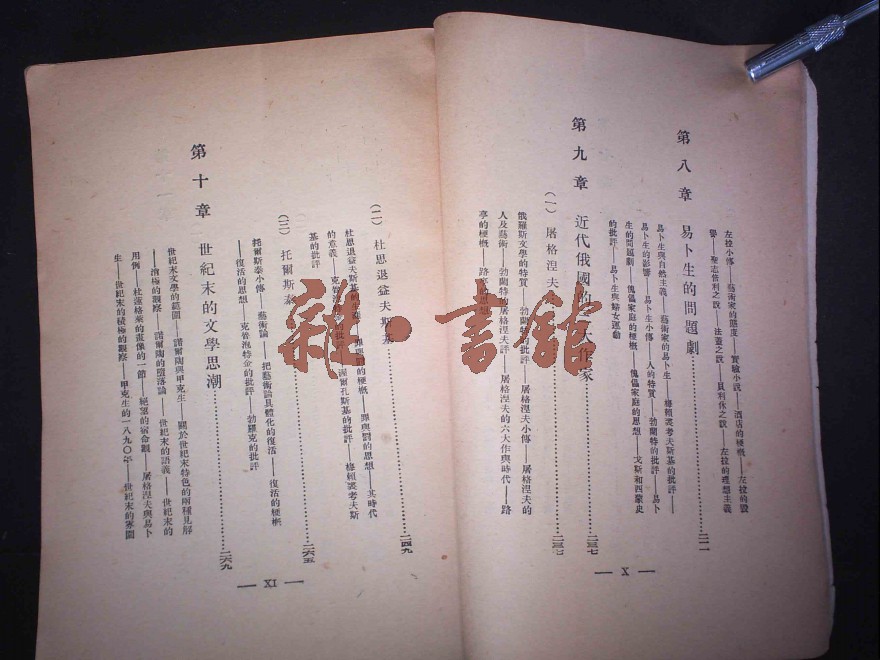 左拉小傳——藝術家的態度——實驗小說——酒店的梗概——左拉的說
譽——聖志倍利之說——法蓋之說——貝利休之說——左拉的理想主義
第八章 易卜生的問題劇…………二一一
易卜生與自然主義——藝術家的易卜生——梅賴裘考夫斯基的批評——
易卜生的影響——易卜生小傳——人的特質——勃蘭特的批評——易卜
生的問題劇——傀儡家庭的梗概——傀儡家庭的思想——戈斯和四蒙史
的批評——易卜生與婦女運動
第九章 近代俄國的三大作家…………二三七
(一) 屠格涅夫…………二三七
俄羅斯文學的特質——勃蘭特的屠格涅夫評——屠格涅夫小傳——屠格涅夫的
人及藝術——屠格涅夫的六大作與時代——路
亭的梗概——路亭的思想
— X —
(二) 杜思退益夫斯基…………二四九
杜思退益夫斯基的——罪與罰的梗概——罪與罰的思想——其時代
的意義——克普泡特金的批評——渥爾孔斯基的批評——梅賴裘考夫斯
基的批評
(三) 托爾斯泰…………二六五
托爾斯泰小傳——藝術論——把藝術論具體化的復活——復活的梗概
——復活的思想——克普泡特金的批評——勃羅克的批評
第十章 世紀末的文學思潮…………二六九
世紀末文學的範圍——諾爾陶與甲克生——關於世紀末特色的兩種見解
——消極的觀察——諾爾陶的墮落論——世紀末的語義——世紀末的
用例——杜蓮格萊的畫像的一節——絕望的宿命觀——屠格涅夫與易卜
生——世紀末的積極的觀察——甲克生的一八九〇年——世紀末的氛圍
— XI —
雜·書館